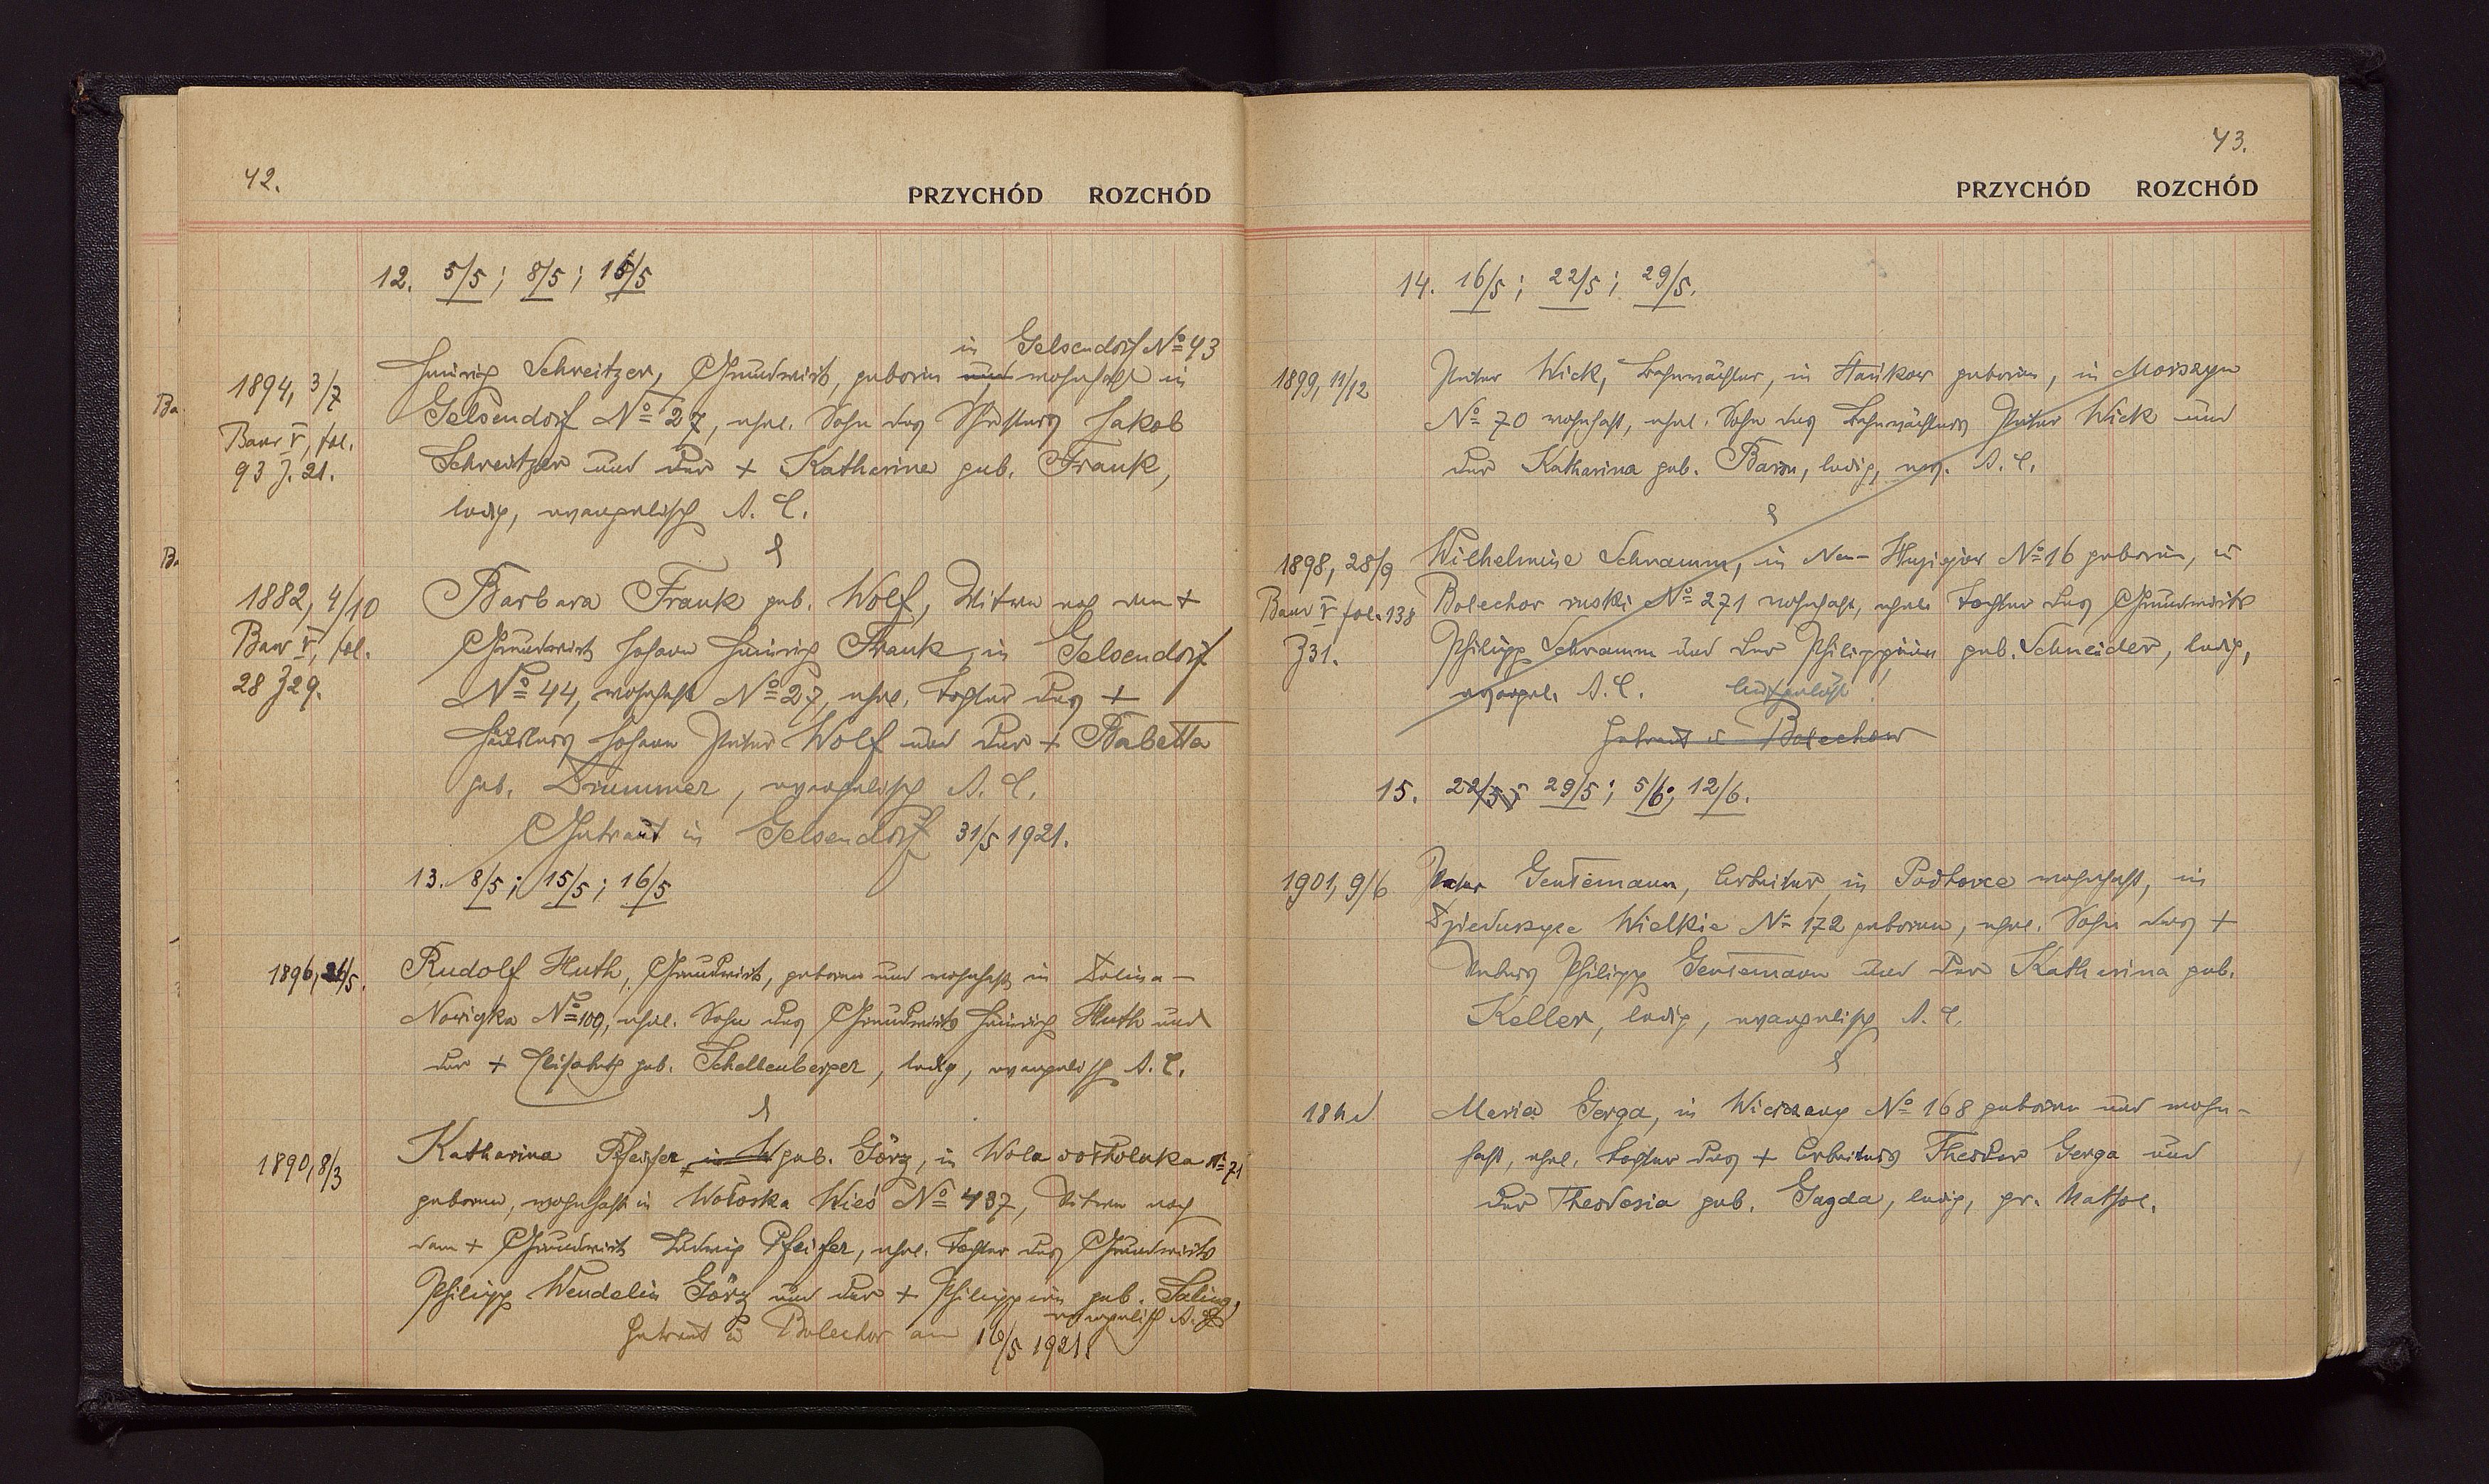 42.
PRZYCHÓD ROZCHÓD
12. 5/5; 8/5; 16/5
in Gelsendorf No 43
1894, 3/7
Heinrich Schreitzer, Grundwirt, geboren und wohnhaft in
Baur V, fol.
93 Z. 21.
Gelsendorf No 27, ehel. Sohn des Jakob
Schreitzer und der + Katharine geb. Frank,
ledig, evangelisch A. C.
&
1882, 4/10
Baur V, fol.
28 Z 29.
Barbara Frank geb. Wolf, Witwe nach dem +
Grundwirt Johann Heinrich Frank, in Gelsendorf
No 44, wohnhaft No 27, ehel. Tochter des +
Häuslers Johann Peter Wolf und der + Babetta
geb. Drummer, evangelisch A. C.
Getraut in Gelsendorf 31/5 1921.
13. 8/5; 15/5; 16/5
1896, 26/5.
Rudolf Huth, Grundwirt, geboren und wohnhaft in Dolina-
Nowiczka No 100, ehel. Sohn des Grundwirts Heinrich Huth und
der + Elisabeth geb. Schellenberger, ledig, evangelisch A. C.
&
1890, 8/3
Katharina Pfeifer in W geb. Görz, in Wola No 71
geboren, wohnhaft in Wołoska Wieś No 437, Witwe nach
dem + Grundwirt Ludwig Pfeifer, ehel. Tochter des Grundwirts
Philipp Wendelin Görz und der + Philippine geb. Saling,
evangelisch A. C.
Getraut in Bolechow am 16/5 1921.
43.
PRZYCHÓD ROZCHÓD
14. 16/5; 22/5; 29/5.
1899, 11/12
Peter Wick, Bahnwächter, in Hańkow geboren, in Morszyn
No 70 wohnhaft, ehel. Sohn des Bahnwächters Peter Wick und
der Katharina geb. Baron, ledig, ev. A. C.
&
1898, 28/9
Baur V fol. 138
Z 31.
Wilhelmine Schramm, in Neu- No 16 geboren, in
Bolechow ruski No 271 wohnhaft, ehel. Tochter des Grundwirts
Philipp Schramm und der Philippine geb. Schneider, ledig,
evangel. A. C. Aufgelöst!
Getraut in Bolechow
15. 22/5; 29/5; 5/6; 12/6.
1901, 9/6
Peter Gentemann, Arbeiter, in wohnhaft, in
Dzieduszyce Wielkie No 172 geboren, ehel. Sohn des +
Philipp Gentemann und der Katharina geb.
Keller, ledig, evangelisch A. C.
&
Maria Gerga, in No 168 geboren und wohn-
haft, ehel. Tochter des + Arbeiters Theodor Gerga und
der Theodosia geb. Gazda, ledig, gr. kathol.